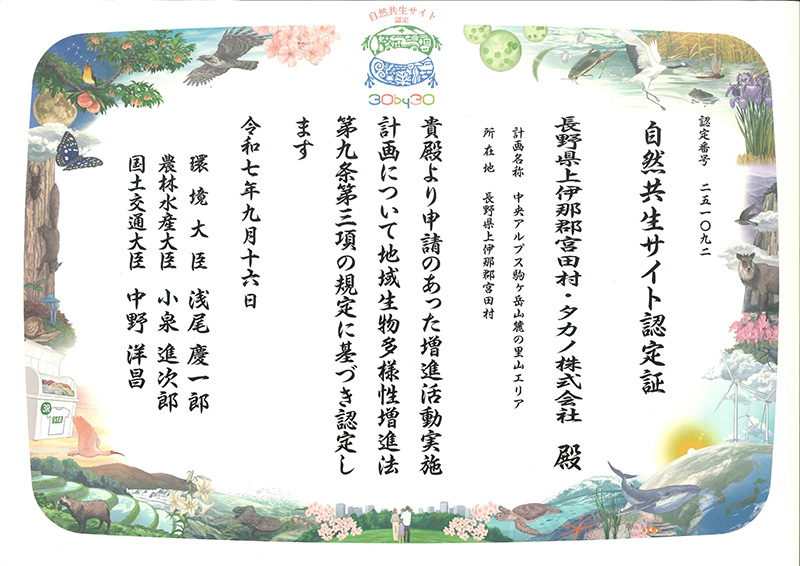 自然共生サイト
認定
30by30
認定番号 二五一〇九二
自然共生サイト認定証
長野県上伊那郡宮田村・タカノ株式会社 殿
計画名称 中央アルプス駒ヶ岳山麓の里山エリア
所在地 長野県上伊那郡宮田村
貴殿より申請のあった増進活動実施
計画について地域生物多様性増進法
第九条第三項の規定に基づき認定し
ます
令和七年九月十六日
環境大臣 浅尾慶一郎
農林水産大臣 小泉進次郎
国土交通大臣 中野洋昌
USED